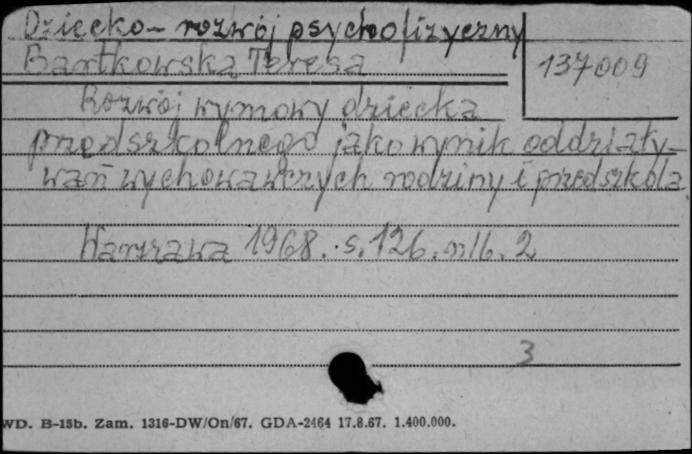 Dziecko - rozwój psychofizyczny
Bartkowska Teresa
137009
Rozwój wymowy dziecka
przedszkolnego jako wynik oddziały-
wań wychowawczych rodziny i przedszkola
Warszawa 1968. s. 126. nlb. 2
3
WD. B-15b. Zam. 1316-DW/On/67. GDA-2464 17.8.67. 1.400.000.